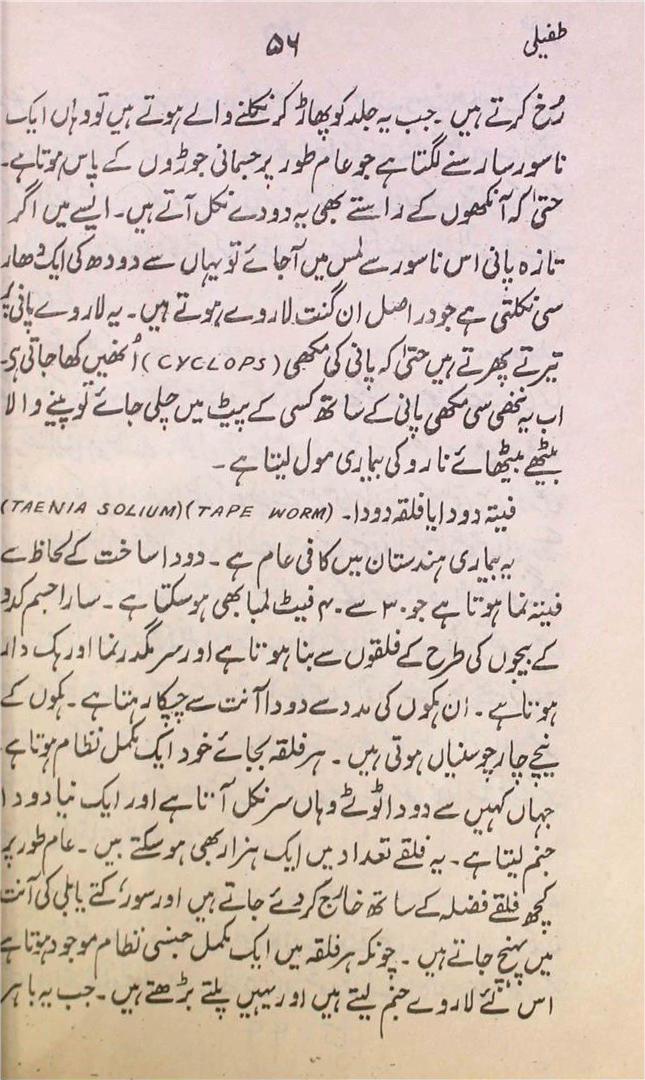 طفیلی
۵۶
رُخ کرتے ہیں۔ جب یہ جلد کو پھاڑ کر نکلنے والے ہوتے ہیں تو وہاں ایک
ناسور سا رسنے لگتا ہے جو عام طور پر جسمانی جوڑوں کے پاس ہوتا ہے۔
حتیٰ کہ آنکھوں کے راستے بھی یہ دودے نکل آتے ہیں۔ ایسے میں اگر
تازہ پانی اس ناسور سے لمس میں آجائے تو یہاں سے دودھ کی ایک دھار
سی نکلتی ہے جو دراصل ان گنت لاروے ہوتے ہیں۔ یہ لاروے پانی پر
تیرتے پھرتے ہیں حتیٰ کہ پانی کی مکھی (CYCLOPS) اُنھیں کھا جاتی ہے۔
اب یہ ننھی سی مکھی پانی کے ساتھ کسی کے پیٹ میں چلی جائے تو پینے والا
بیٹھے بیٹھائے نارو کی بیماری مول لیتا ہے۔
فیتہ دودا یا فلقہ دودا۔ (TAENIA SOLIUM)(TAPE WORM)
یہ بیماری ہندستان میں کافی عام ہے۔ دودا ساخت کے لحاظ سے
فیتہ نما ہوتا ہے جو ۳۰ سے ۴۰ فیٹ لمبا بھی ہو سکتا ہے۔ سارا جسم کدو
کے بیجوں کی طرح کے فلقوں سے بنا ہوتا ہے اور سر مگدر نما اور ہک دار
ہوتا ہے۔ ان ہکوں کی مدد سے دودا آنت سے چپکا رہتا ہے۔ ہکوں کے
نیچے چار چوسنیاں ہوتی ہیں۔ ہر فلقہ بجائے خود ایک مکمل نظام ہوتا ہے
جہاں کہیں سے دودا ٹوٹے وہاں سر نکل آتا ہے اور ایک نیا دودا
جنم لیتا ہے۔ یہ فلقے تعداد میں ایک ہزار بھی ہو سکتے ہیں۔ عام طور پر
کچھ فلقے فضلہ کے ساتھ خارج کر دئے جاتے ہیں اور سور، کتے یا بلی کی آنت
میں پہنچ جاتے ہیں۔ چونکہ ہر فلقہ میں ایک مکمل جنسی نظام موجود ہوتا ہے
اس لئے لاروے جنم لیتے ہیں اور یہیں پلتے بڑھتے ہیں۔ جب یہ باہر